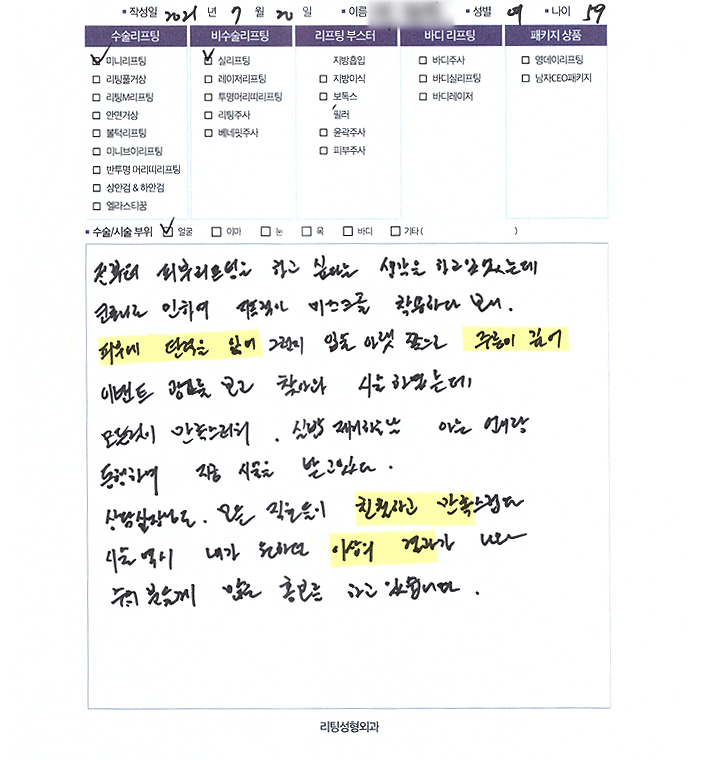 ▪ 작성일 2021 년 7 월 20 일 ▪ 이름 ▪ 성별 여 ▪ 나이 59
수술리프팅 비수술리프팅 리프팅 부스터 바디 리프팅 패키지 상품
미니리프팅 실리프팅 지방흡입 바디주사 영데이리프팅
리팅풀거상 레이저리프팅 지방이식 바디실리프팅 남자CEO패키지
리팅M리프팅 투명머리띠리프팅 보톡스 바디레이저
안면거상 리팅주사 필러
볼턱리프팅 베네핏주사 윤곽주사
미니브이리프팅 피부주사
반투명 머리띠리프팅
상안검 & 하안검
엘라스티꿈
▪ 수술/시술 부위 얼굴 이마 눈 목 바디 기타 ( )
피부리프팅을 하고 싶다는 생각을 하고 있었는데
코로나로 인하여 마스크를 착용하다 보니.
피부에 탄력을 잃어 그런지 입술 아랫 쪽으로 주름이 깊어
이벤트 광고를 보고 찾아와 시술 하였는데
모든것이 만족스러워. 아는 언니랑
동행하여 지금 시술을 받고있다.
상담실장님도. 모든 직원들이 친절하고 만족스럽다
시술 역시 내가 원하던 이상의 결과가 나와
홍보를 하고 있습니다.
리팅성형외과